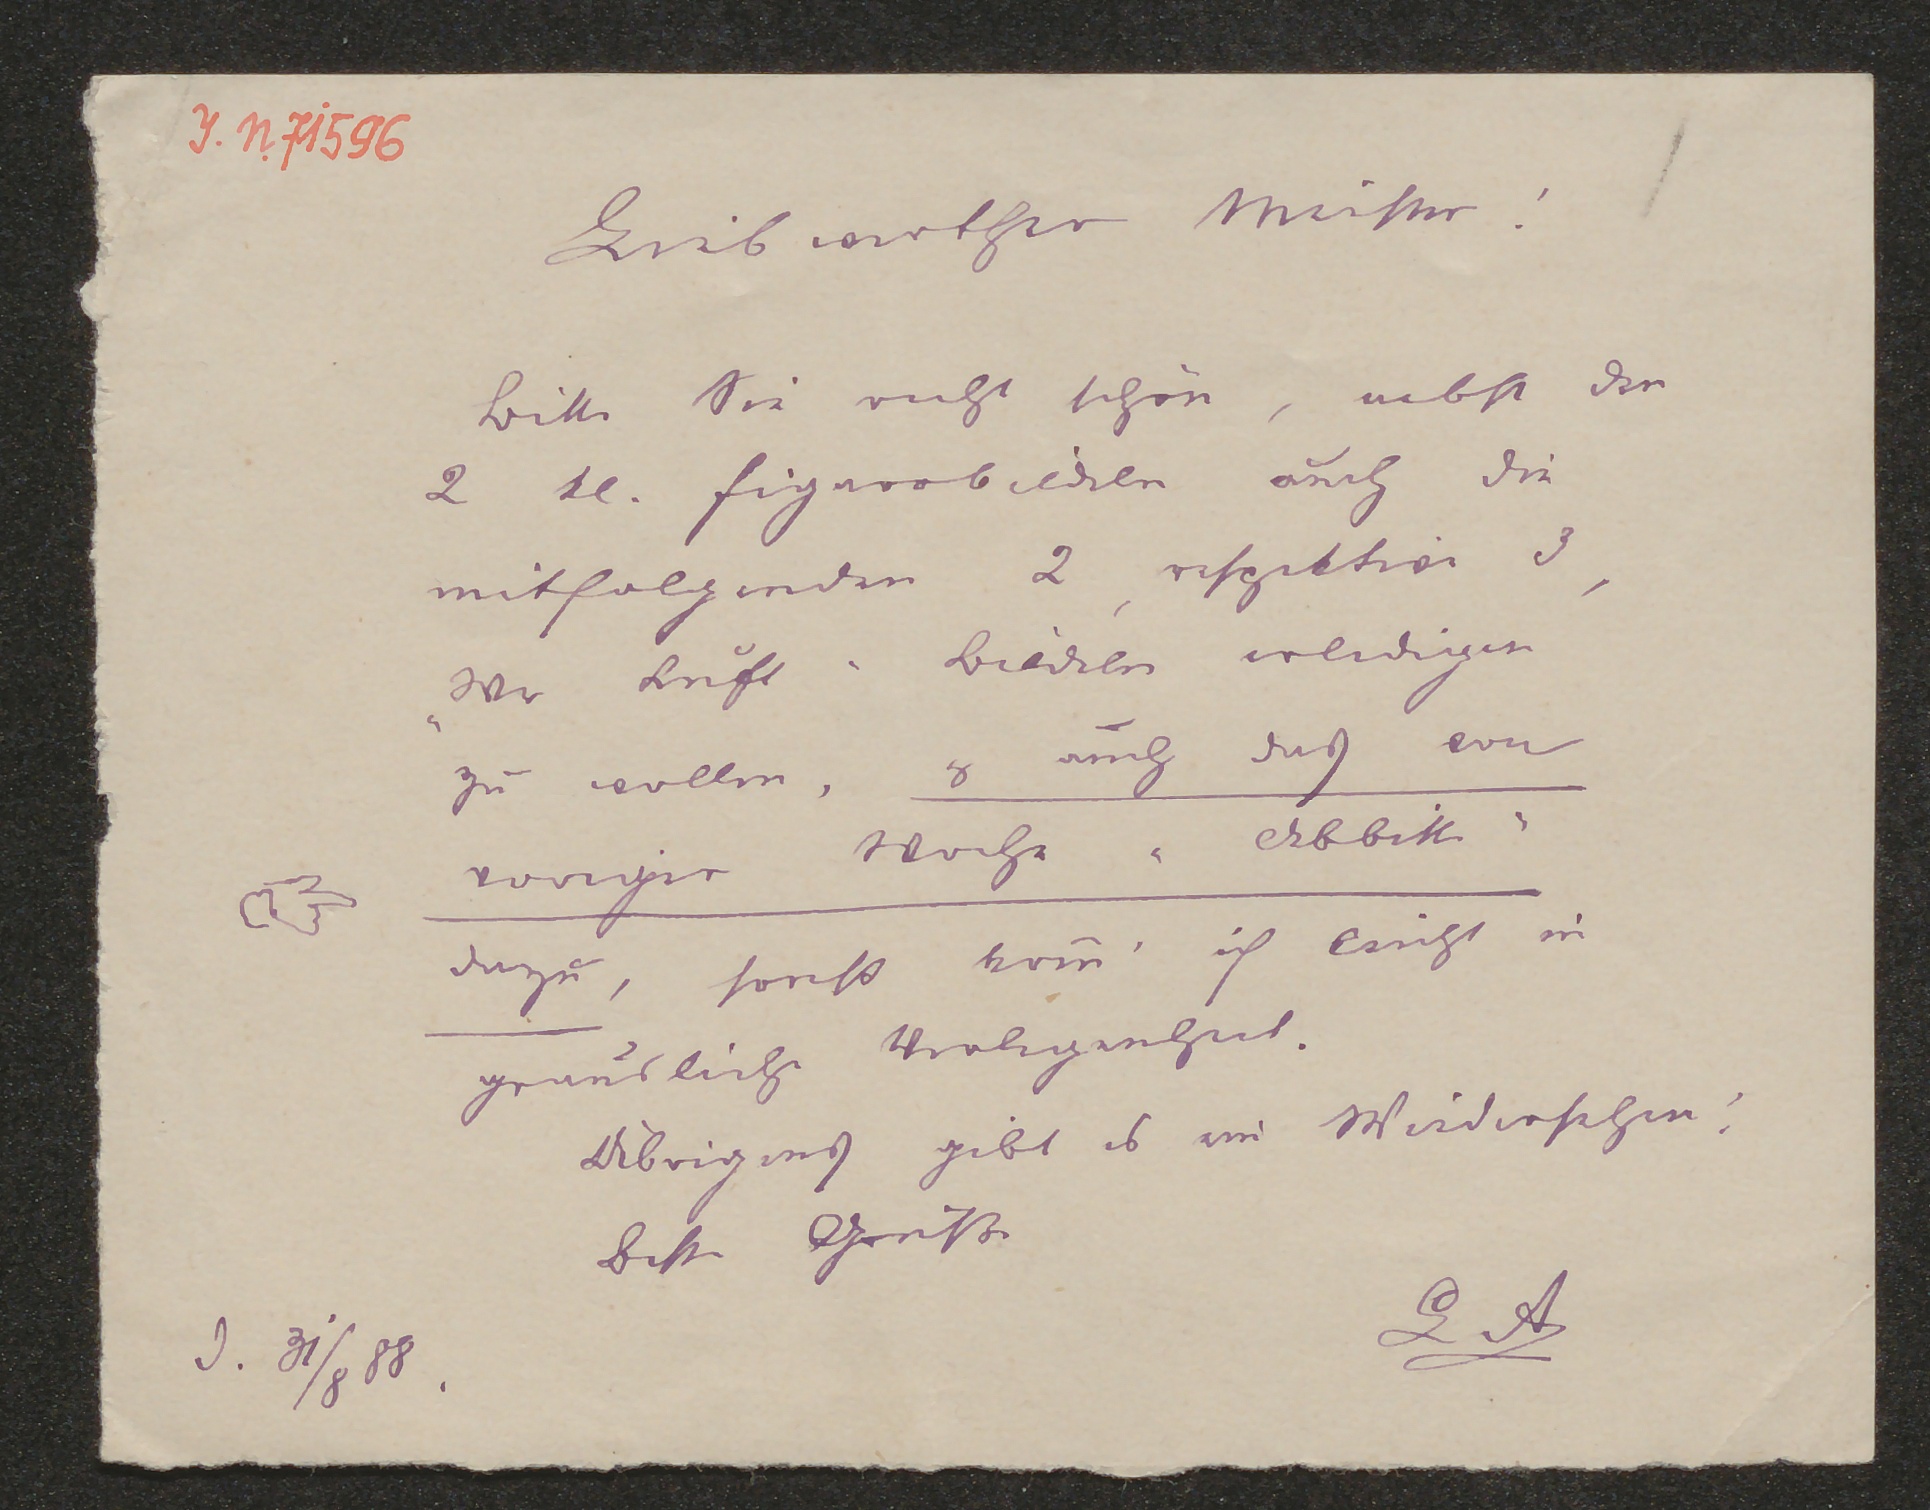 I. N. 71596
Liebwerther Meister!
Bitte Sie recht schön, nebst den
2 kl. Figarobildeln auch die
mitfolgenden 2, respektive 3,
„Wr Luft" Bildeln erledigen
zu wollen, & auch das von
voriger Woche „Abbitte"
dazu, sonst kom̄' ich leicht in
grausliche Verlegenheit.
Übrigens gibt es ein Wiedersehen!
Beste Grüße
LA
d. 31/8 88.